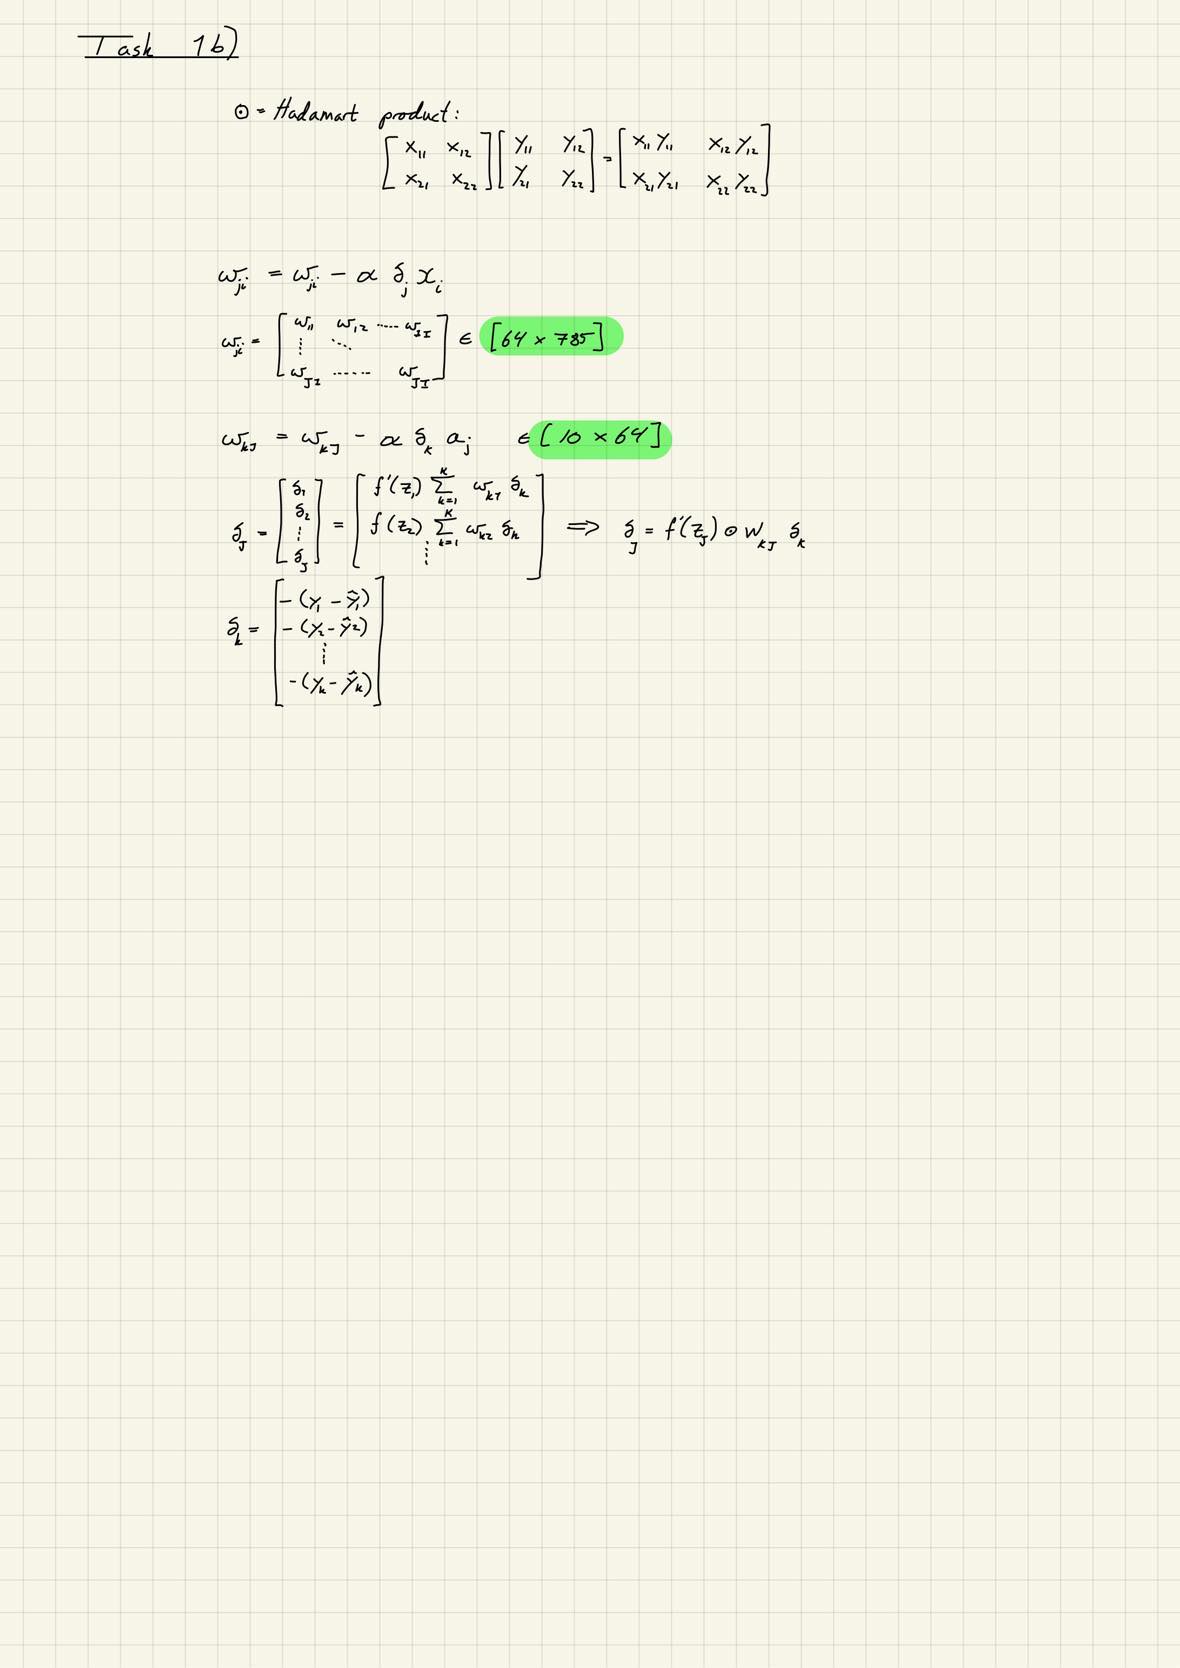 Task 1b)
⊙ = Hadamart product:
[ x₁₁ x₁₂ ; x₂₁ x₂₂ ] [ y₁₁ y₁₂ ; y₂₁ y₂₂ ] = [ x₁₁ y₁₁ x₁₂ y₁₂ ; x₂₁ y₂₁ x₂₂ y₂₂ ]
w_ji = w_ji - α δ_j x_i
w_ji = [ w₁₁ w₁₂ ..... w_1I ; ⋮ ⋱ ; w_J1 ...... w_JI ] ∈ [64 × 785]
w_kJ = w_kJ - α δ_k a_j ∈ [10 × 64]
δ_J = [ δ₁ ; δ₂ ; ⋮ ; δ_J ] = [ f'(z₁) Σ_{k=1}^{K} w_k1 δ_k ; f(z₂) Σ_{k=1}^{K} w_k2 δ_k ; ⋮ ] ⟹ δ_J = f'(z_J) ⊙ W_kJ δ_k
δ_k = [ -(y₁ - ŷ₁) ; -(y₂ - ŷ₂) ; ⋮ ; -(y_k - ŷ_k) ]